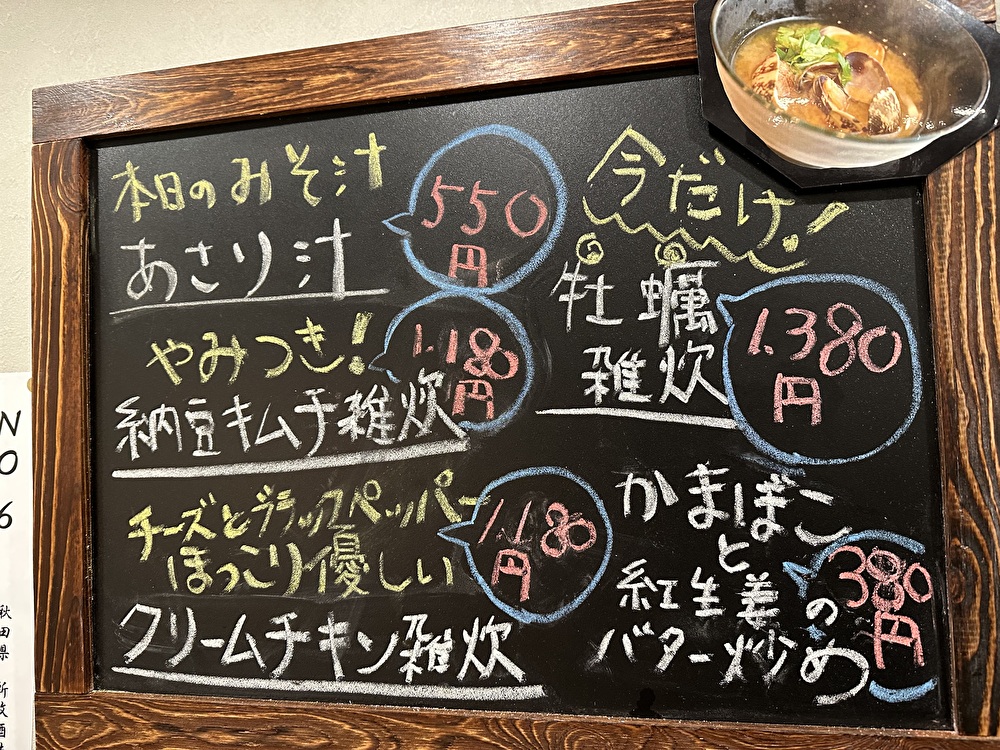 本日のみそ汁
あさり汁
550
円
やみつき!
納豆キムチ雑炊
1.180
円
チーズとブラックペッパー
ほっこり優しい
クリームチキン雑炊
1.180
円
今だけ!
牡蠣
雑炊
1.380
円
かまぼこ
と
紅生姜の
バター炒め
380
円
N
O
6
秋田県